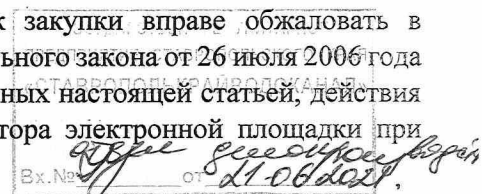 к закупки вправе обжаловать в
ьного закона от 26 июля 2006 года
«СТАВРОПОЛЬКРАЙВОДОКАНАЛ»
ных настоящей статьей, действия
тора электронной площадки при
Вх.№ от 21.06.2021,